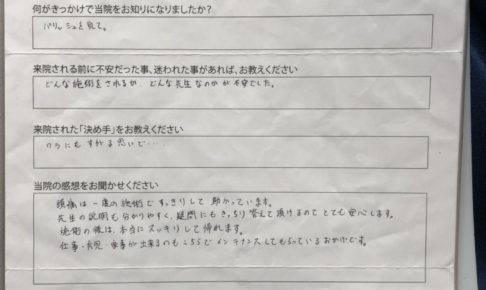 何がきっかけで当院をお知りになりましたか?
パリッシュを見て。
来院される前に不安だった事、迷われた事があれば、お教えください
どんな施術をされるか、どんな先生なのかが不安でした。
来院された「決め手」をお教えください
ワラにもすがる思いで…
当院の感想をお聞かせください
頭痛は一度の施術ですっきりして助かっています。
先生の説明も分かりやすく、疑問にもきっちり答えて頂けるのでとても安心します。
施術の後は、本当にスッキリして帰れます。
仕事・育児・家事が出来るのもこちらでメインテナンスしてもらっているおかげです。